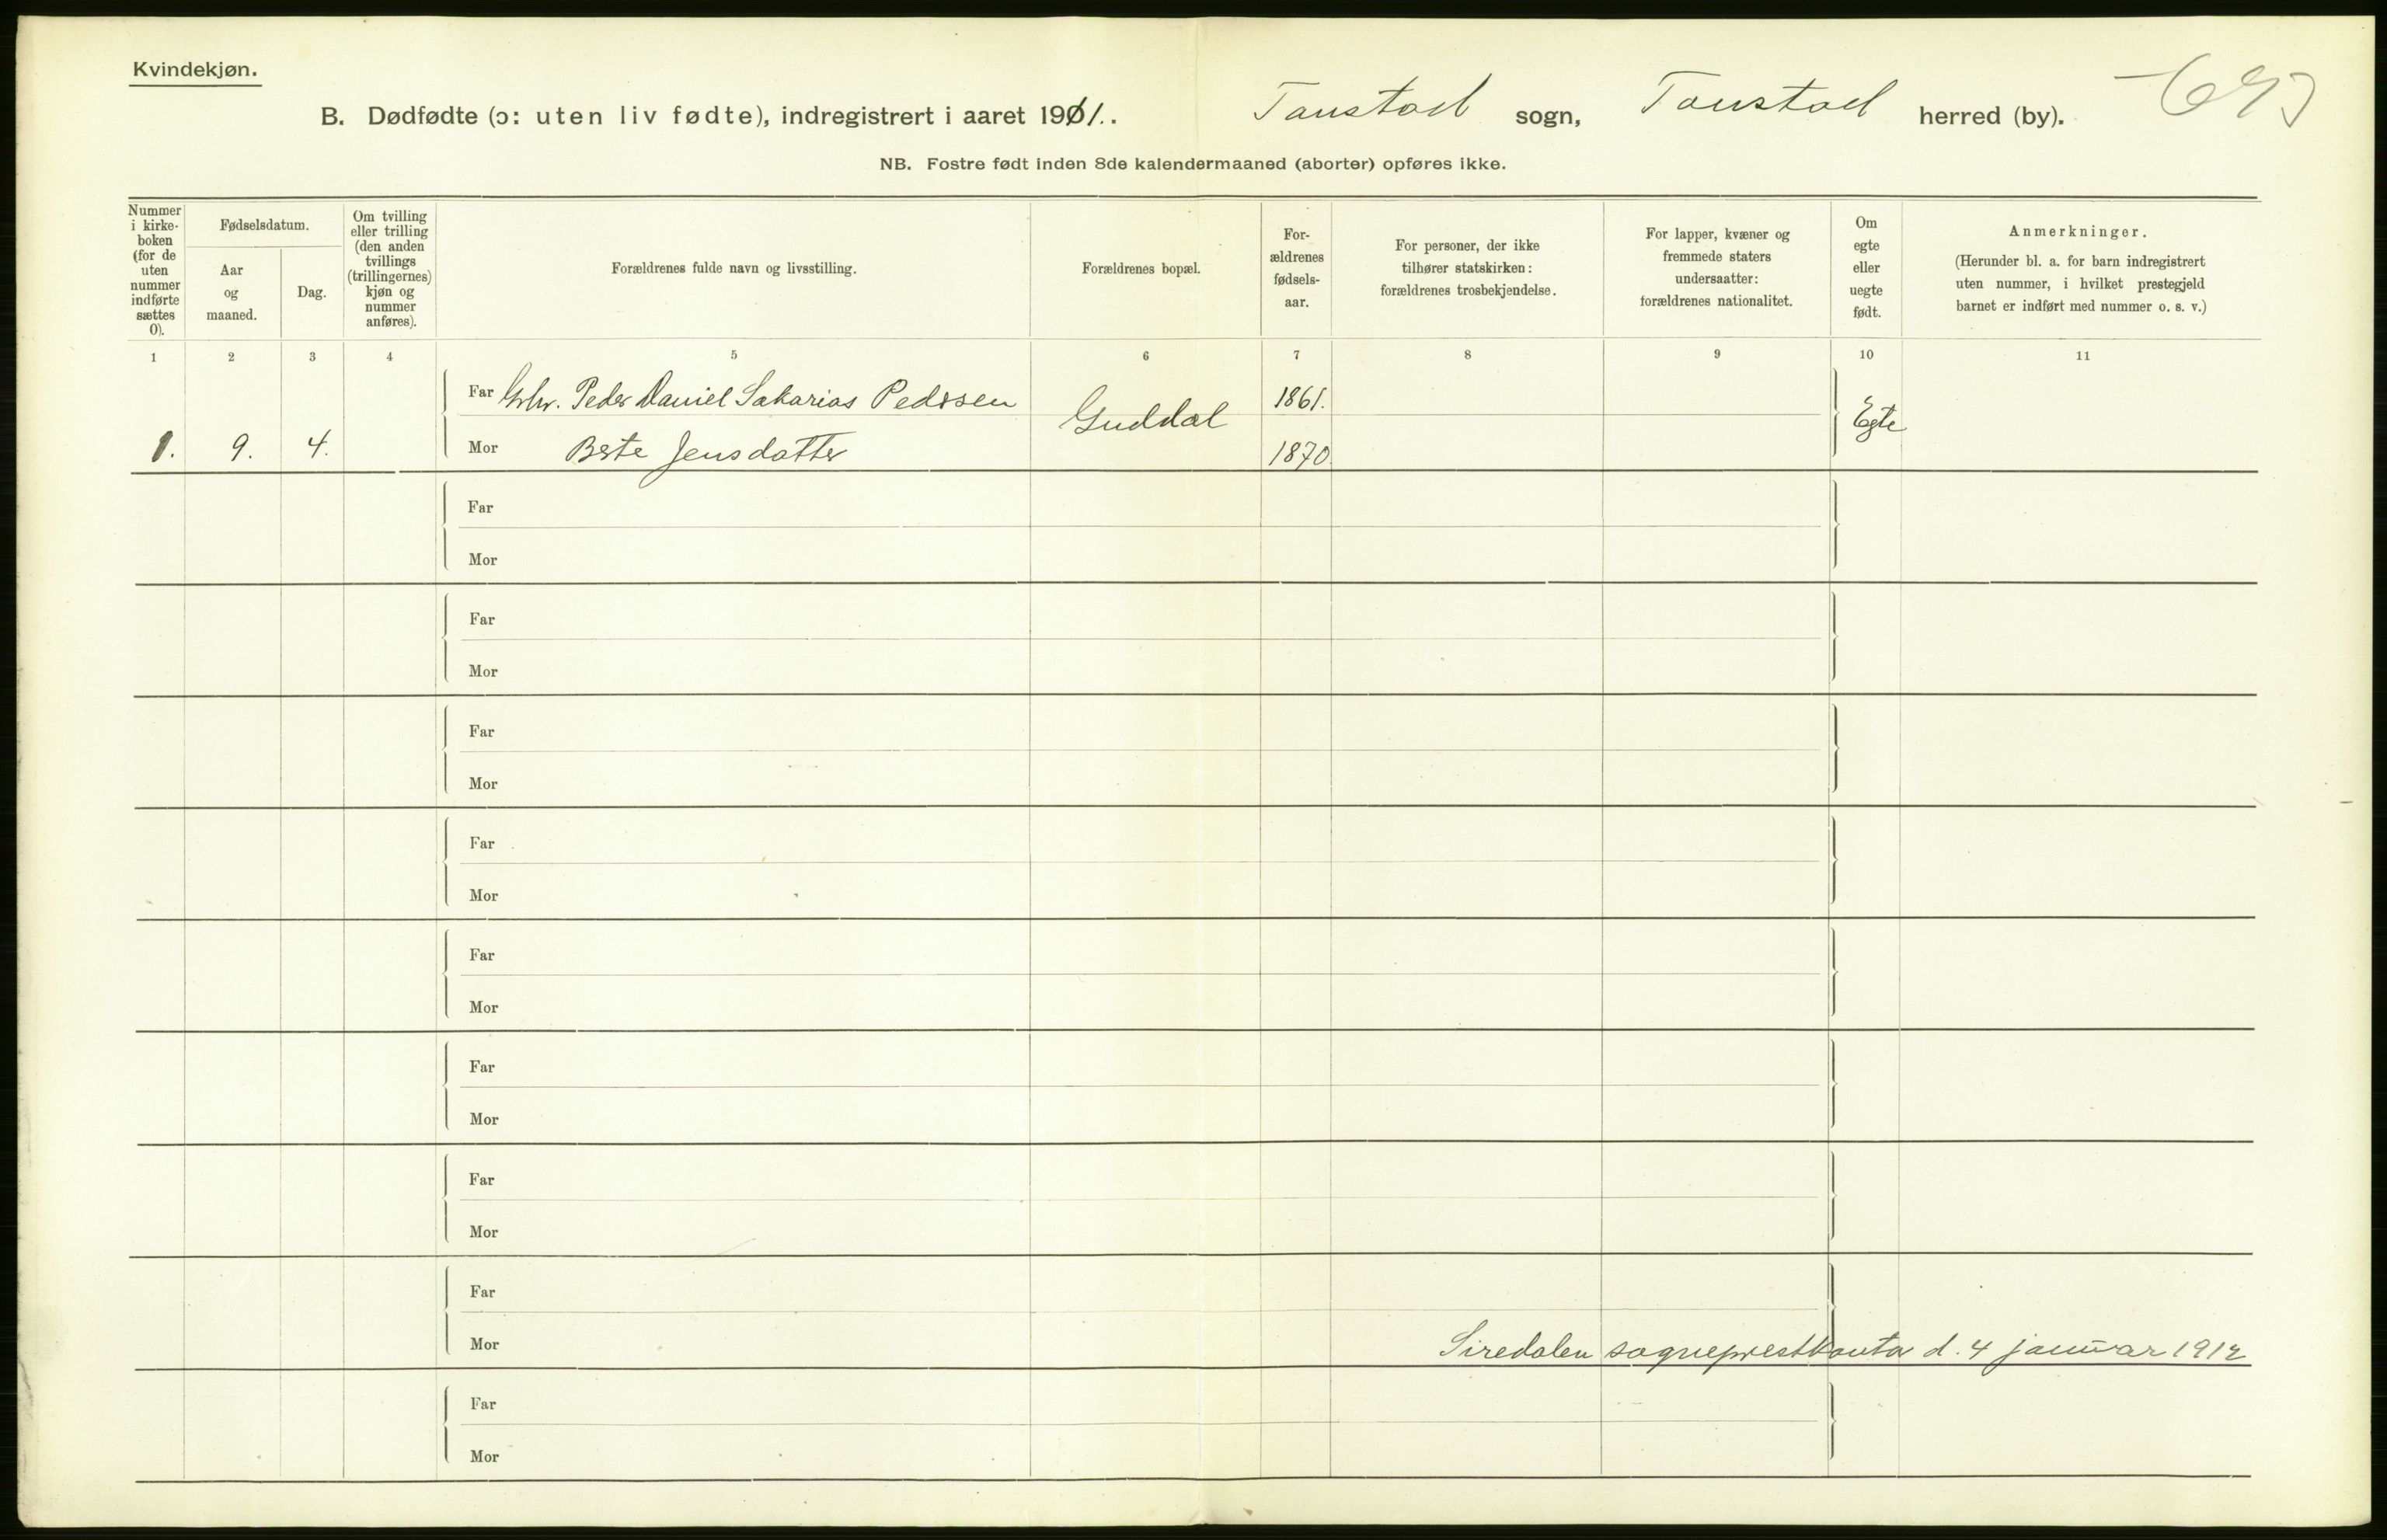 Kvindekjøn.
B. Dødfødte (ɔ: uten liv fødte), indregistrert i aaret 1911. Tonstad sogn, Tonstad herred (by).
NB. Fostre født inden 8de kalendermaaned (aborter) opføres ikke.
Nummer
i kirke-
boken
(for de
uten
nummer
indførte
sættes
0).
Fødselsdatum.
Aar
og
maaned.
Dag.
Om tvilling
eller trilling
(den anden
tvillings
(trillingernes)
kjøn og
nummer
anføres).
Forældrenes fulde navn og livsstilling.
Forældrenes bopæl.
For-
ældrenes
fødsels-
aar.
For personer, der ikke
tilhører statskirken:
forældrenes trosbekjendelse.
For lapper, kvæner og
fremmede staters
undersaatter:
forældrenes nationalitet.
Om
egte
eller
uegte
født.
Anmerkninger.
(Herunder bl. a. for barn indregistrert
uten nummer, i hvilket prestegjeld
barnet er indført med nummer o. s. v.)
1 2 3 4 5 6 7 8 9 10 11
Far Grbr. Peder Daniel Sakarias Pedersen 1861.
Guddal Egte
1. 9. 4. Mor Berte Jensdatter 1870.
Far
Mor
Far
Mor
Far
Mor
Far
Mor
Far
Mor
Far
Mor
Far
Mor
Far
Mor Siredalen sogneprestkontor d. 4 januar 1912
Far
Mor